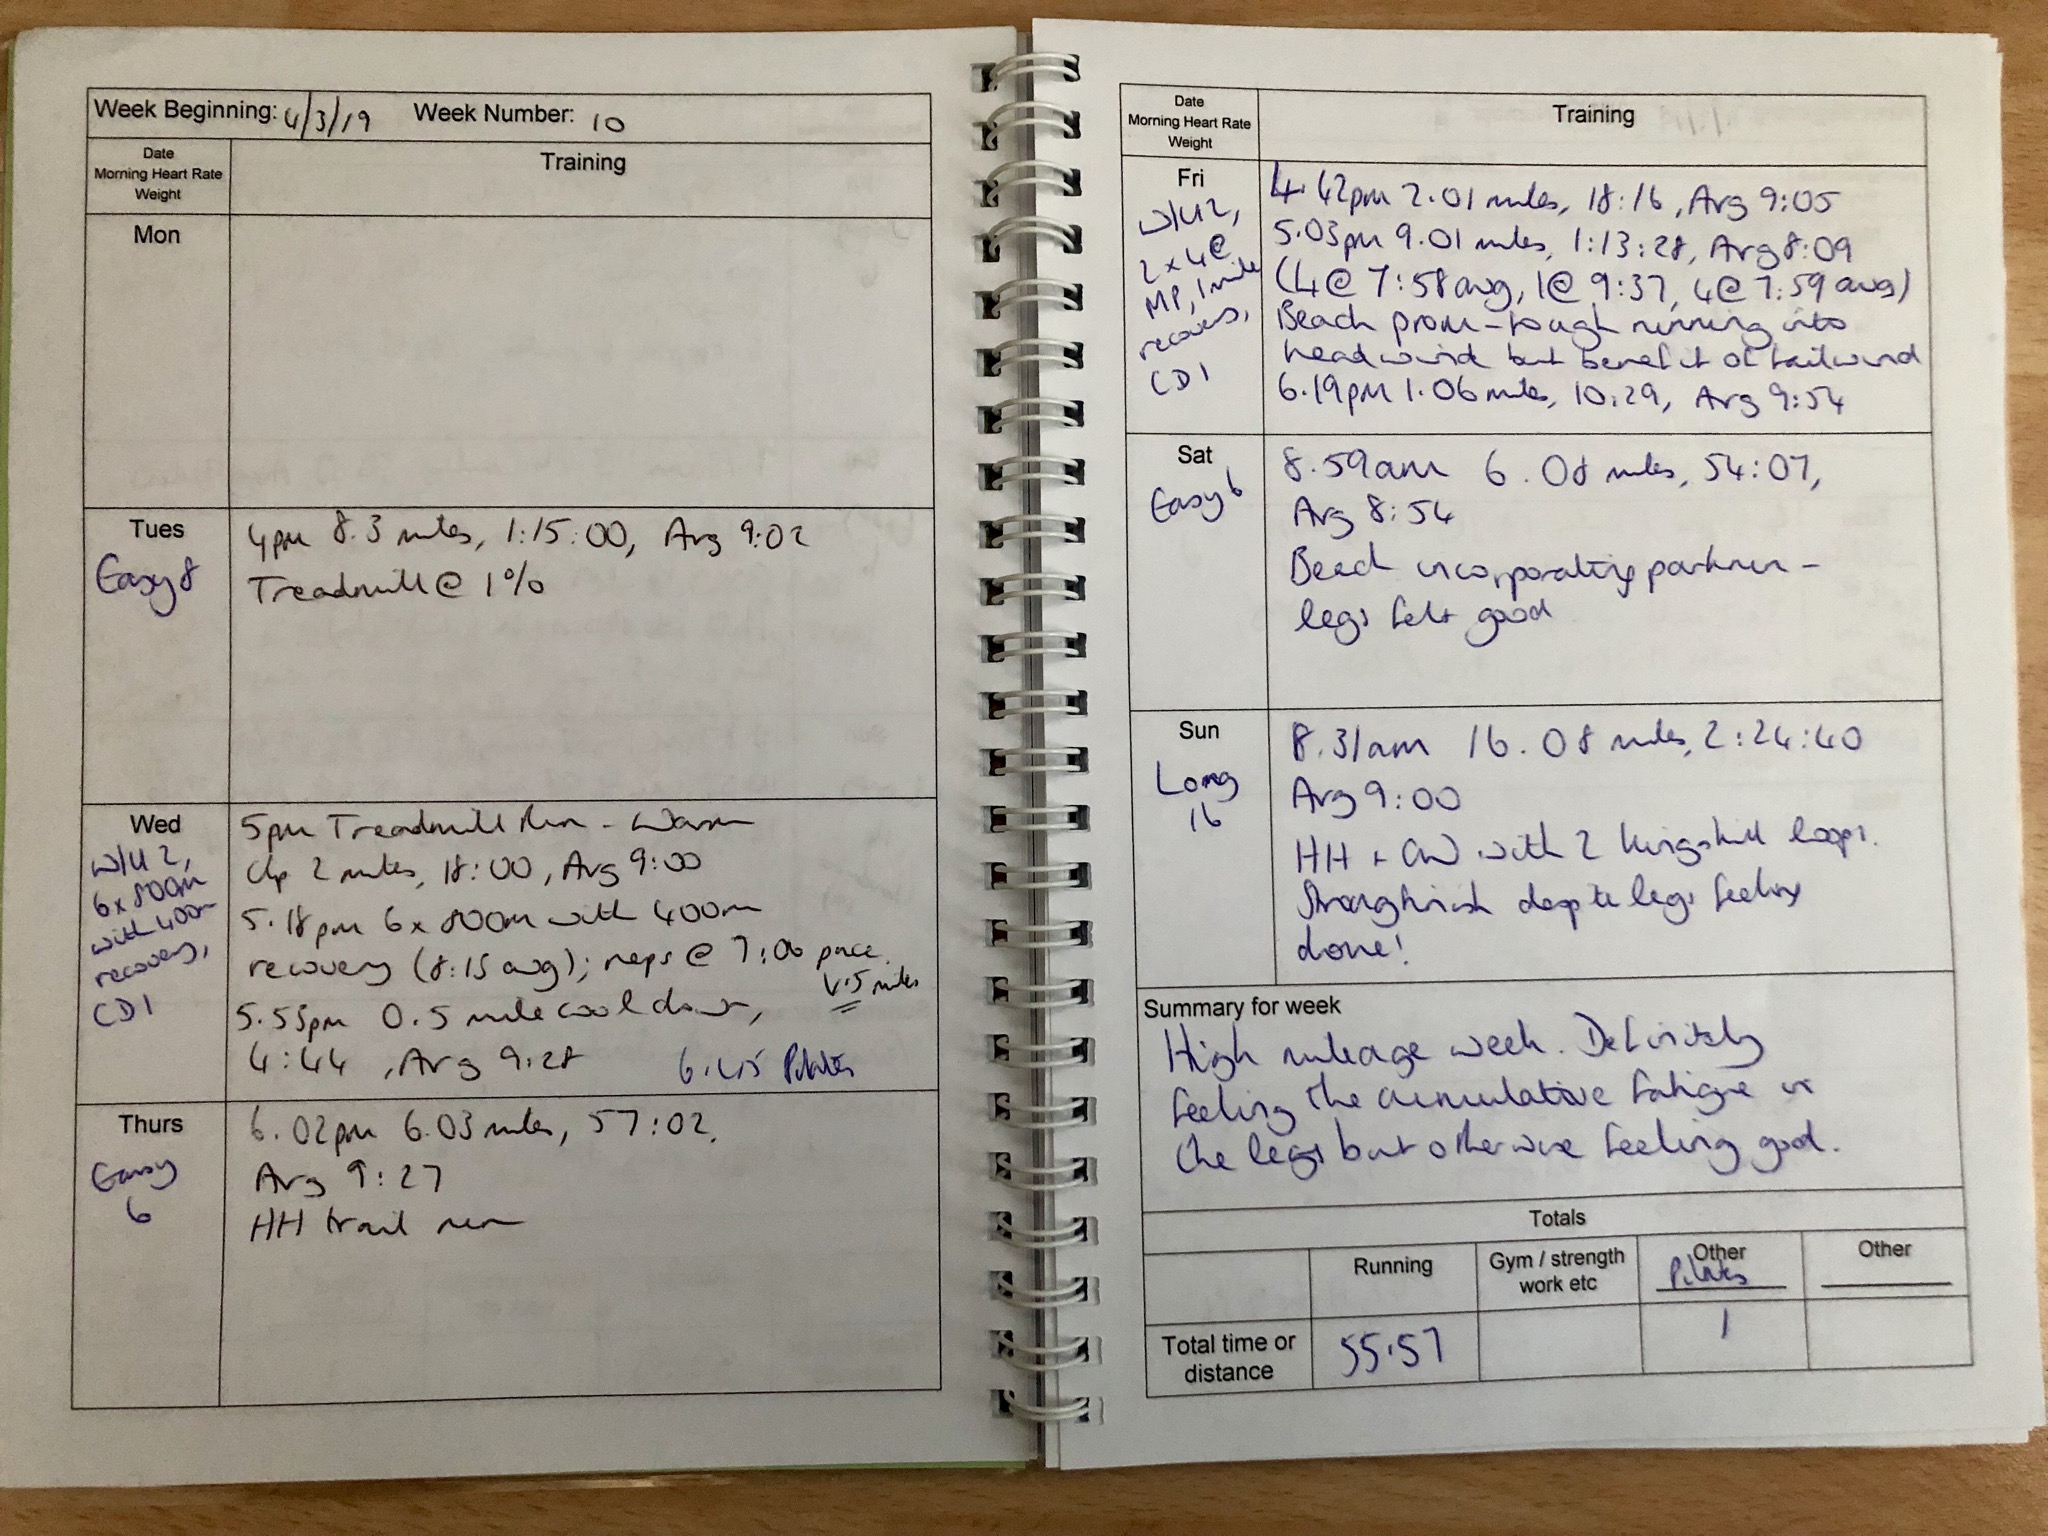 Week Beginning: 4/3/19 Week Number: 10
Date
Morning Heart Rate
Weight
Training
Mon
Tues
Easy 8
4pm 8.3 miles, 1:15:00, Avg 9:02
Treadmill @ 1%
Wed
W/U 2,
6 x 800m
with 400m
recovery,
CD 1
5pm Treadmill Run - Warm
Up 2 miles, 18:00, Avg 9:00
5.18pm 6 x 800m with 400m
recovery (8:15 avg); reps @ 7:06 pace.
4.5 miles
5.53pm 0.5 mile cool down,
4:44, Avg 9:28 6.45 Pilates
Thurs
Easy
6
6.02pm 6.03 miles, 57:02,
Avg 9:27
HH trail run
Date
Morning Heart Rate
Weight
Training
Fri
W/U 2,
2 x 4 @
MP, 1 mile
recovery,
CD 1
4.42pm 2.01 miles, 18:16, Avg 9:05
5.03pm 9.01 miles, 1:13:28, Avg 8:09
(4 @ 7:58 avg, 1 @ 9:37, 4 @ 7:59 avg)
Beach prom - tough running into
headwind but benefit of tailwind
6.19pm 1.06 miles, 10:29, Avg 9:54
Sat
Easy 6
8.59am 6.08 miles, 54:07,
Avg 8:54
Beach incorporating parkrun -
legs felt good
Sun
Long
16
8.31am 16.08 miles, 2:24:40
Avg 9:00
HH + CW with 2 Kingshill loops.
Strong finish despite legs feeling
done!
Summary for week
High mileage week. Definitely
feeling the cumulative fatigue in
the legs but otherwise feeling good.
Totals
Running
Gym / strength
work etc
Other
Pilates
Other
Total time or
distance
55.57
1